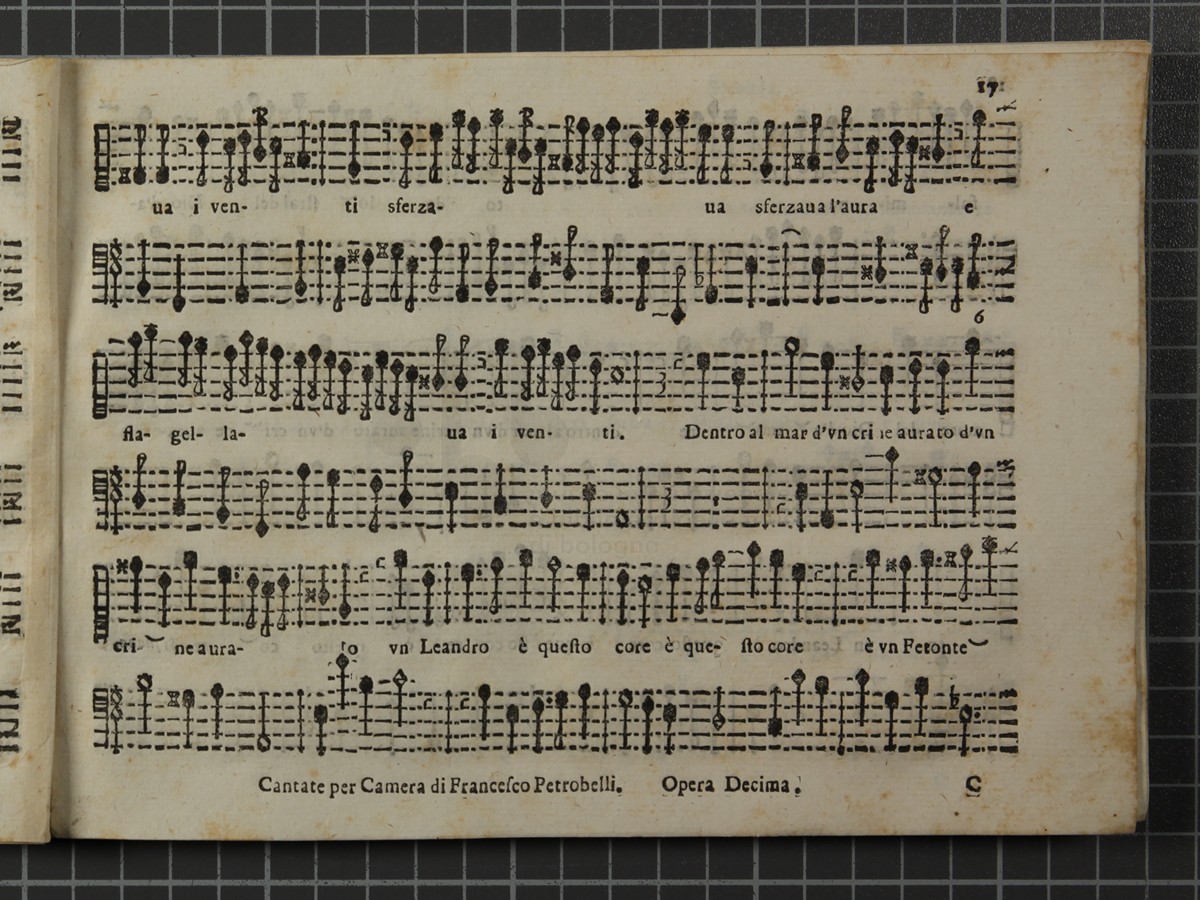 17.
ua i ven- ti sferza- ua sferzaua l'aura e
6
fla- gel- la- ua i ven- ti. Dentro al mar d'vn cri ne aurato d'vn
cri- ne aura- to vn Leandro è queſto core è que- ſto core è vn Fetonte
Cantate per Camera di Franceſco Petrobelli. Opera Decima. C